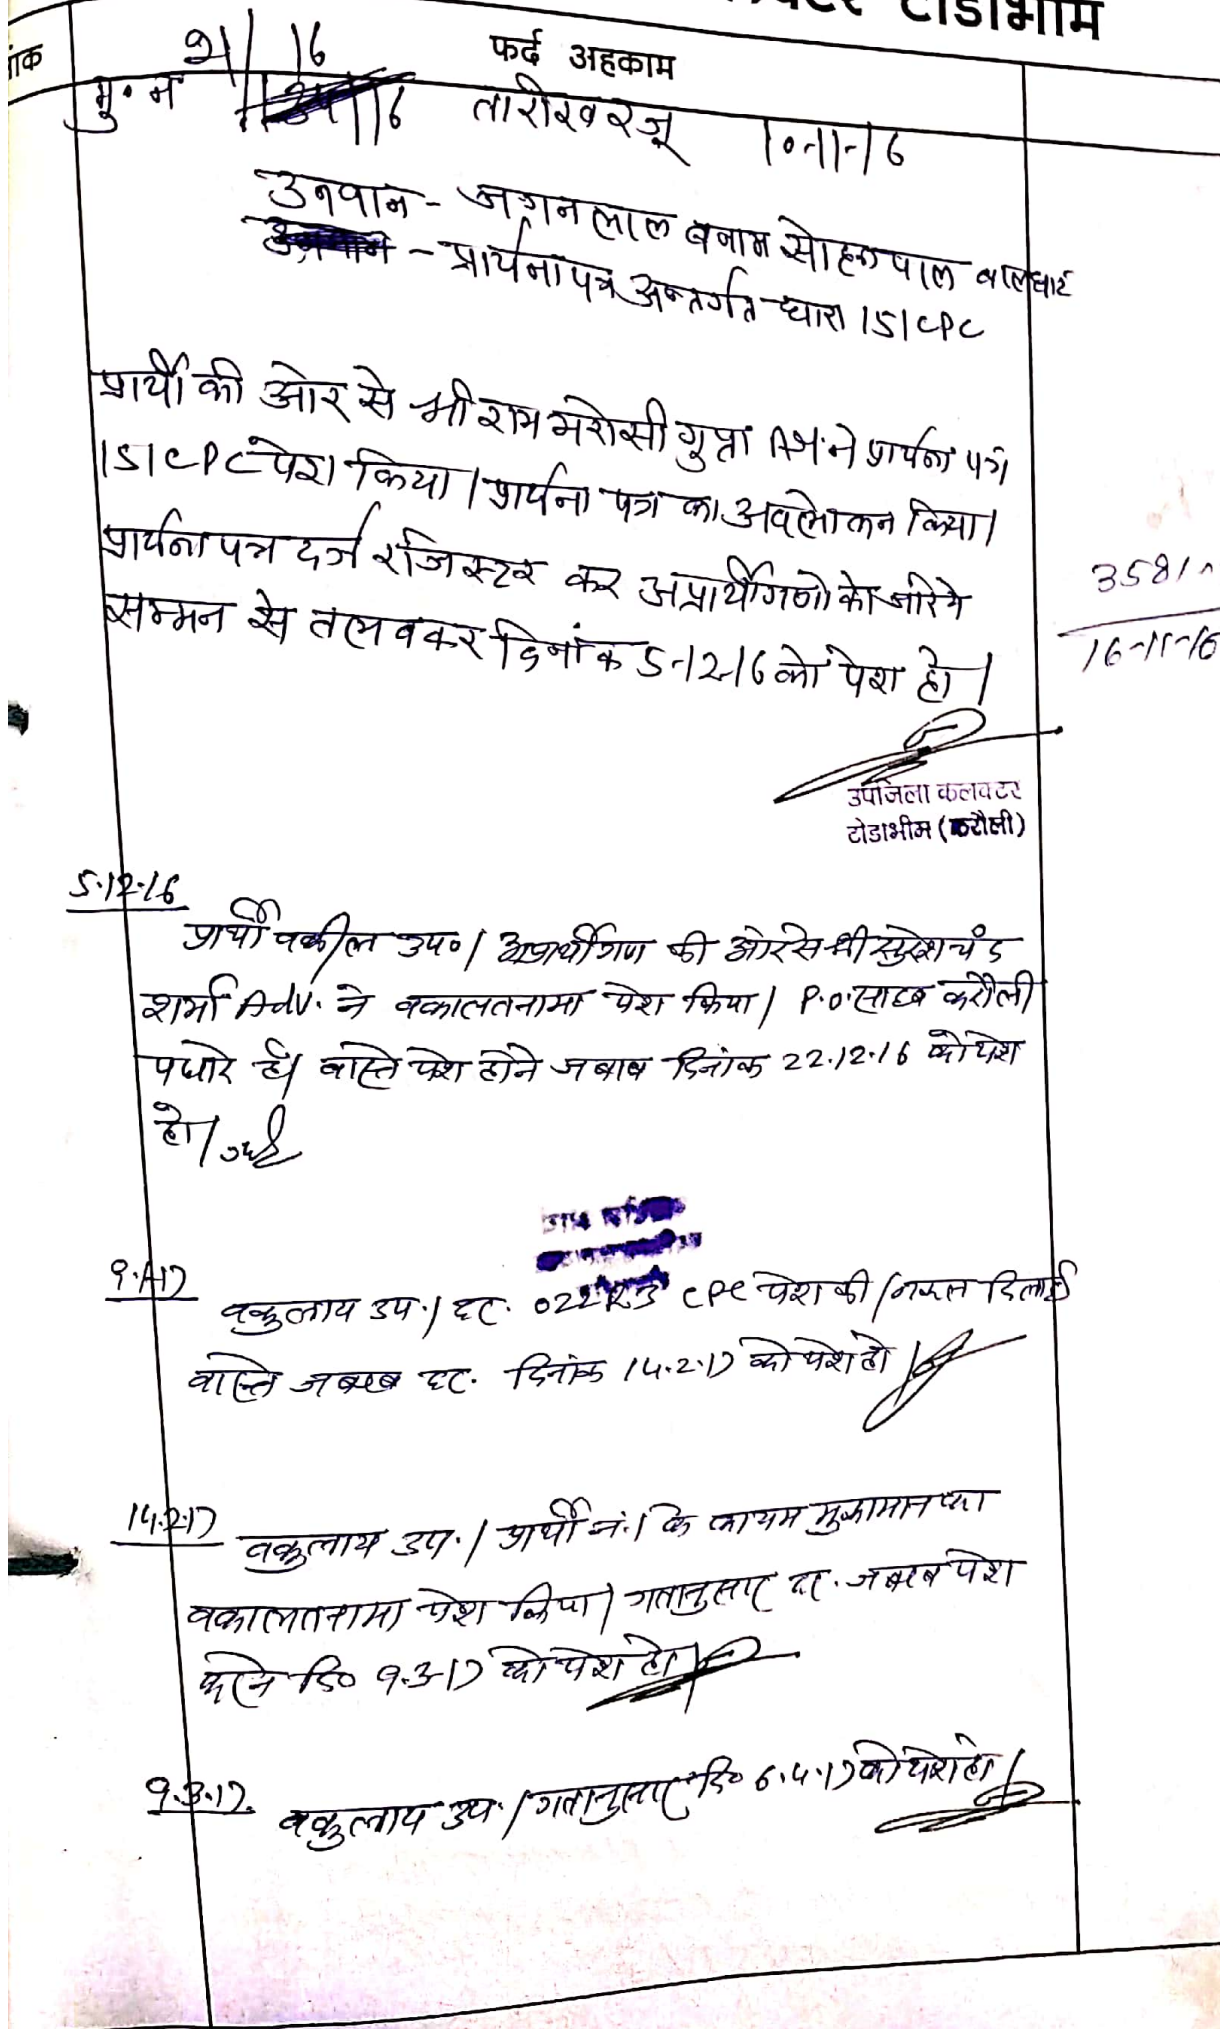 टोडाभीम
फर्द अहकाम
मु. न 21/16 तारीख रजू 10-11-16
उनवान - जगनलाल बनाम सोहनपाल बालघाट
- प्रार्थना पत्र अन्तर्गत धारा 151 CPC
प्रार्थी की ओर से श्री राम भरोसी गुप्ता ने प्रार्थना पत्र
151 CPC पेश किया। प्रार्थना पत्र का अवलोकन किया।
प्रार्थना पत्र दर्ज रजिस्टर कर अप्रार्थीगणो को जरिये
सम्मन से तलब कर दिनांक 5-12-16 को पेश हो।
3581
16-11-16
उपजिला कलक्टर
टोडाभीम (करौली)
5.12.16
प्रार्थी वकील उप०। अप्रार्थीगण की ओर से श्री सुरेश चंद
शर्मा Adv. ने वकालतनामा पेश किया। P.O. साहब करौली
पधारे है। वास्ते पेश होने जबाब दिनांक 22.12.16 को पेश
हो।
9.1.17
वकुलाय उप.। दर. 022 R3 CPC पेश की। नकल दिलाई
वास्ते जबाब दर. दिनांक 14.2.17 को पेश हो।
14.2.17
वकुलाय उप.। प्रार्थी नं. 1 के कायम मुकामान का
वकालतनामा पेश किया। गतानुसार दर. जबाब पेश
करने दि० 9.3.17 को पेश हो।
9.3.17.
वकुलाय उप.। गतानुसार दि० 6.4.17 को पेश हो।